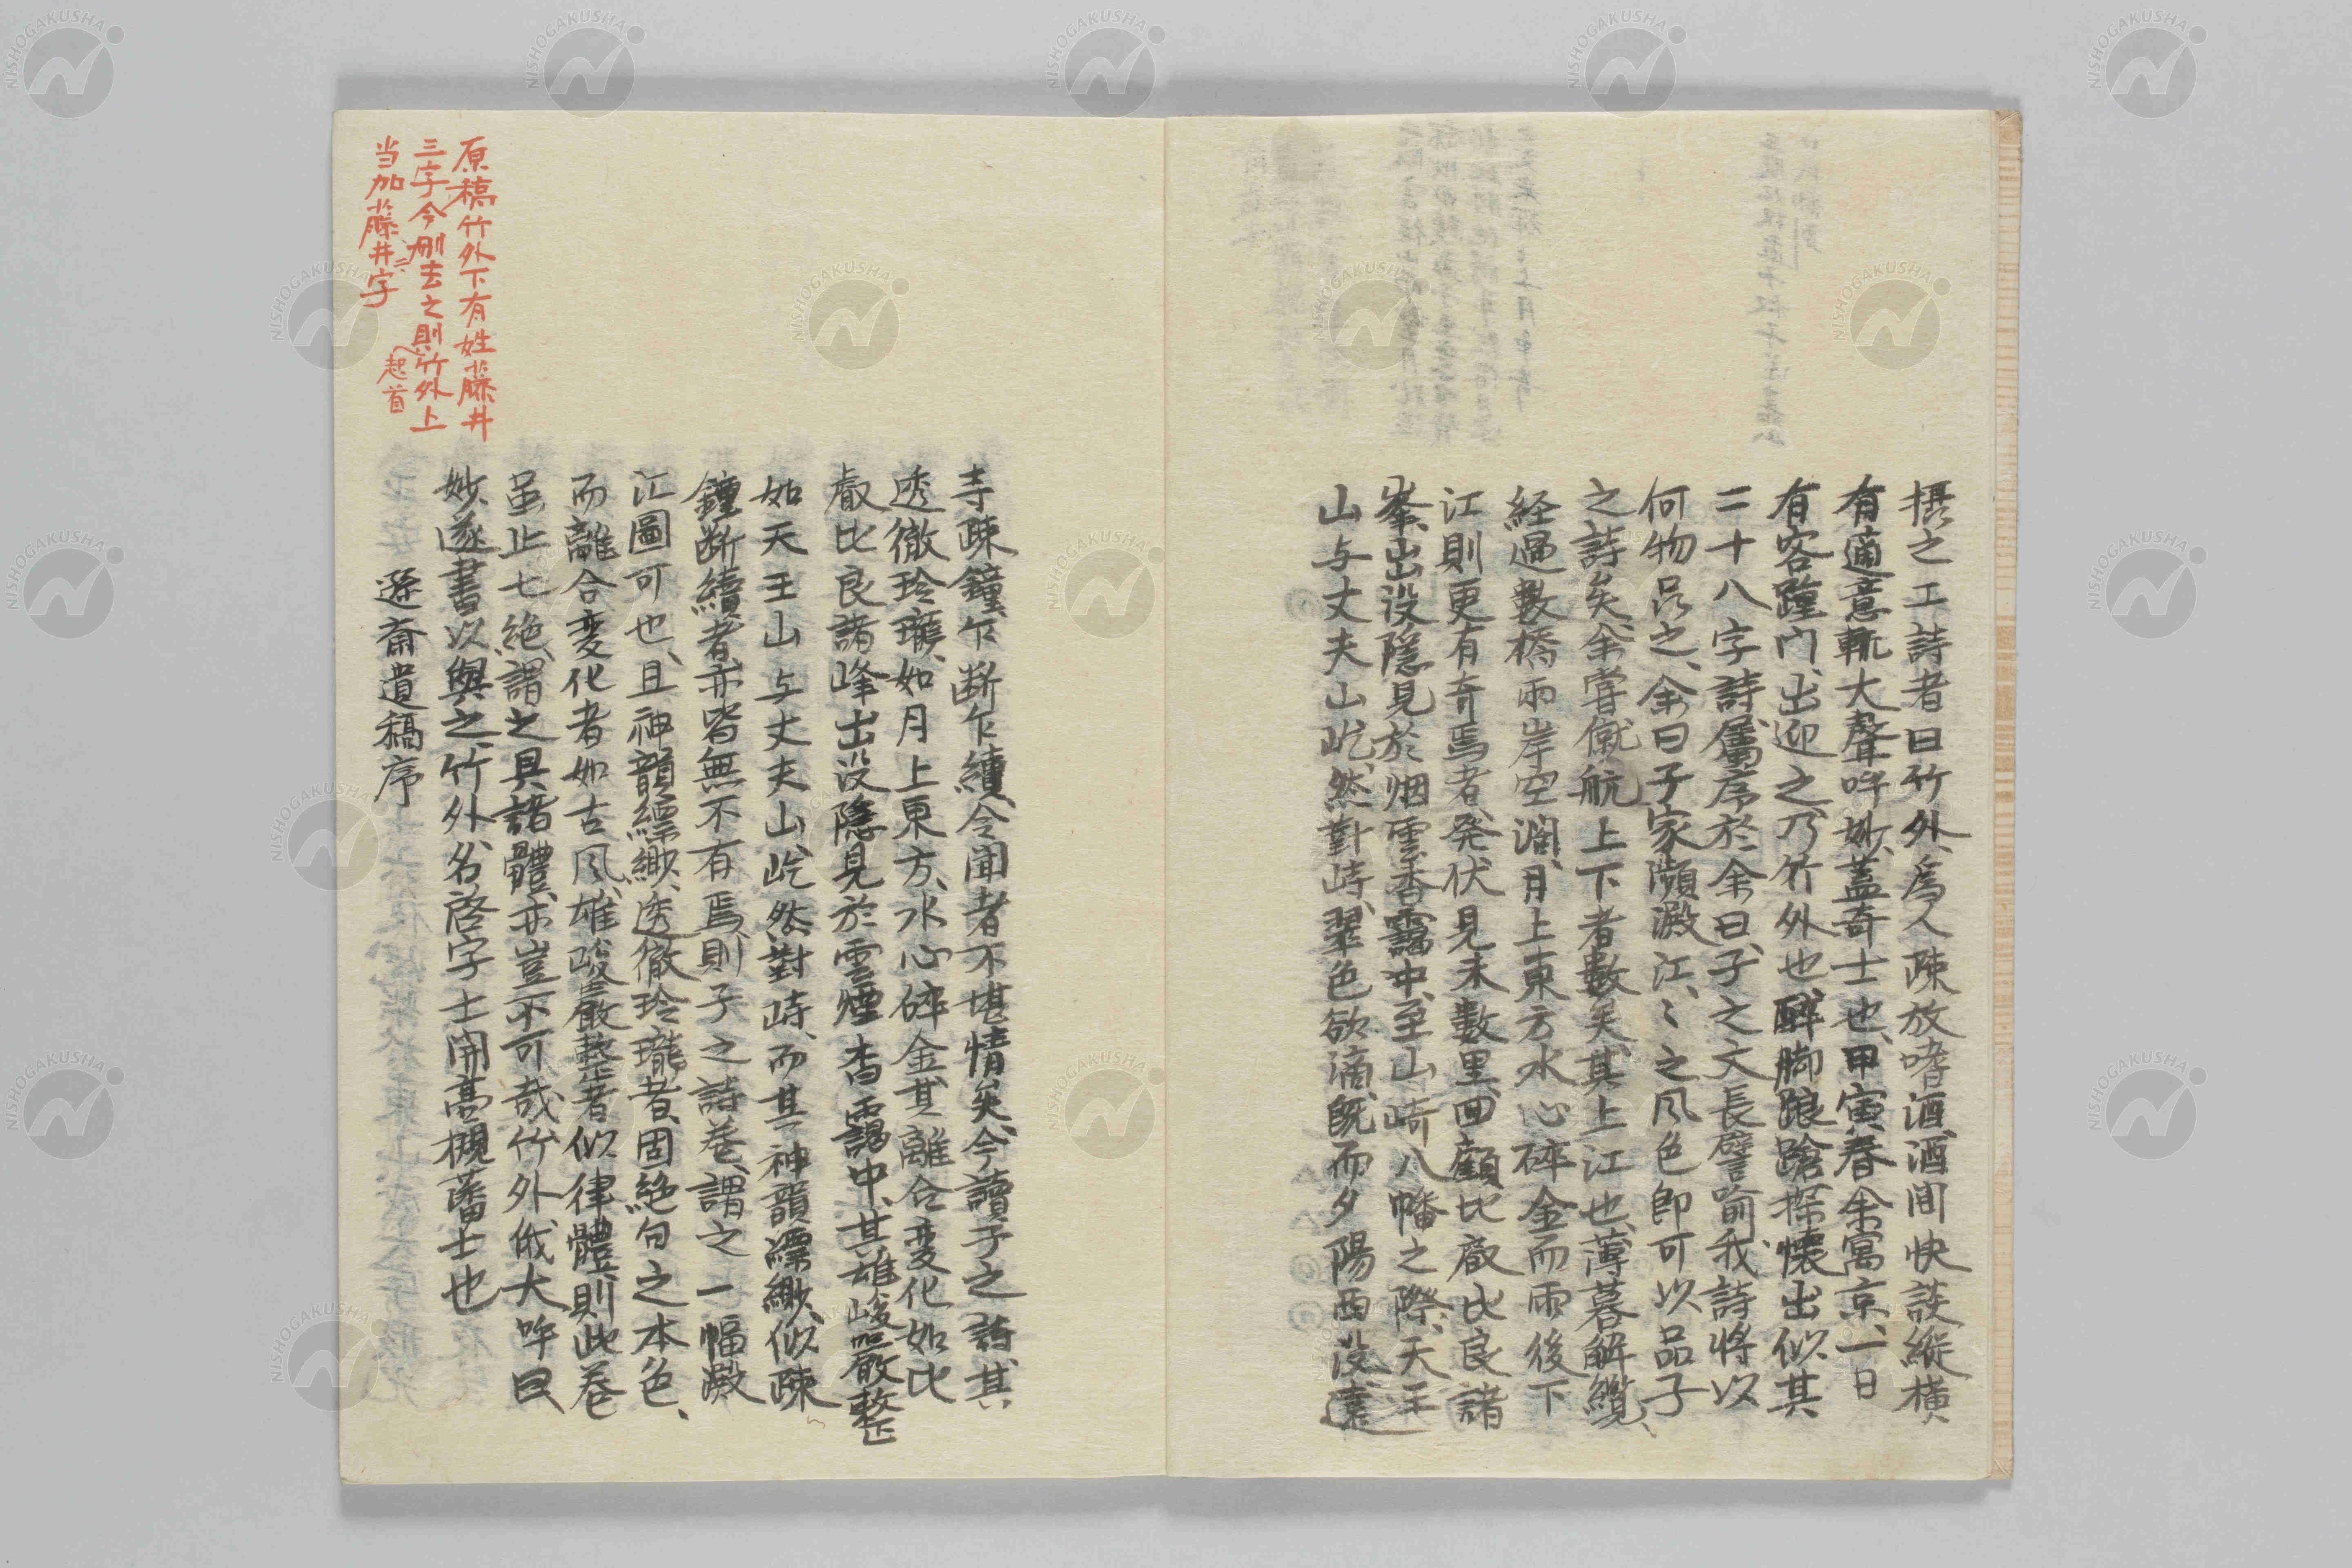 摂之工詩者曰竹外、爲人疎放嗜酒、酒間快談縱橫
有適意輒大聲呼妙、蓋奇士也、甲寅春余寓京、一日
有客踵門、出迎之、乃竹外也、醉脚踉蹌探懷出似其
二十八字詩、属序於余曰、子之文長譬喩、我詩將以
何物品之、余曰子家瀕澱江、〻之风色即可以品子
之詩矣、余嘗僦航上下者數矣、其上江也、薄暮解纜、
経過數橋両岸空濶、月上東方水心碎金而雨後下
江則更有奇焉者、発伏見未數里、回顧比叡比良諸
峯、出没隠見於烟雲杳靄中、至山崎八幡之際、天王
山与丈夫山屹然對峙、翠色欲滴、既而夕陽西没、遠
寺疎鐘、乍断乍續、令聞者不堪情矣、今讀子之詩、其
透徹玲瓏、如月上東方、水心碎金、其離合変化如比
叡比良諸峰出没隠見於雲煙杳靄中、其雄峻嚴整
如天王山与丈夫山、屹然對峙、而其神韻縹緲、似疎
鐘断續者、亦皆無不有焉、則子之詩巻、謂之一幅澱
江圖可也、且神韻縹緲、透徹玲瓏者、固絶句之本色、
而離合変化者如古风、雄峻嚴整者似律體、則此巻
虽止七絶、謂之具諸體、亦豈不可哉、竹外俄大呼曰
妙、遂書以與之、竹外名啓字士開高槻藩士也
遜斎遺稿序
原稿竹外下有姓藤井
三字今刪去之則竹外上
当加藤井二字
起首
NISHOGAKUSHA